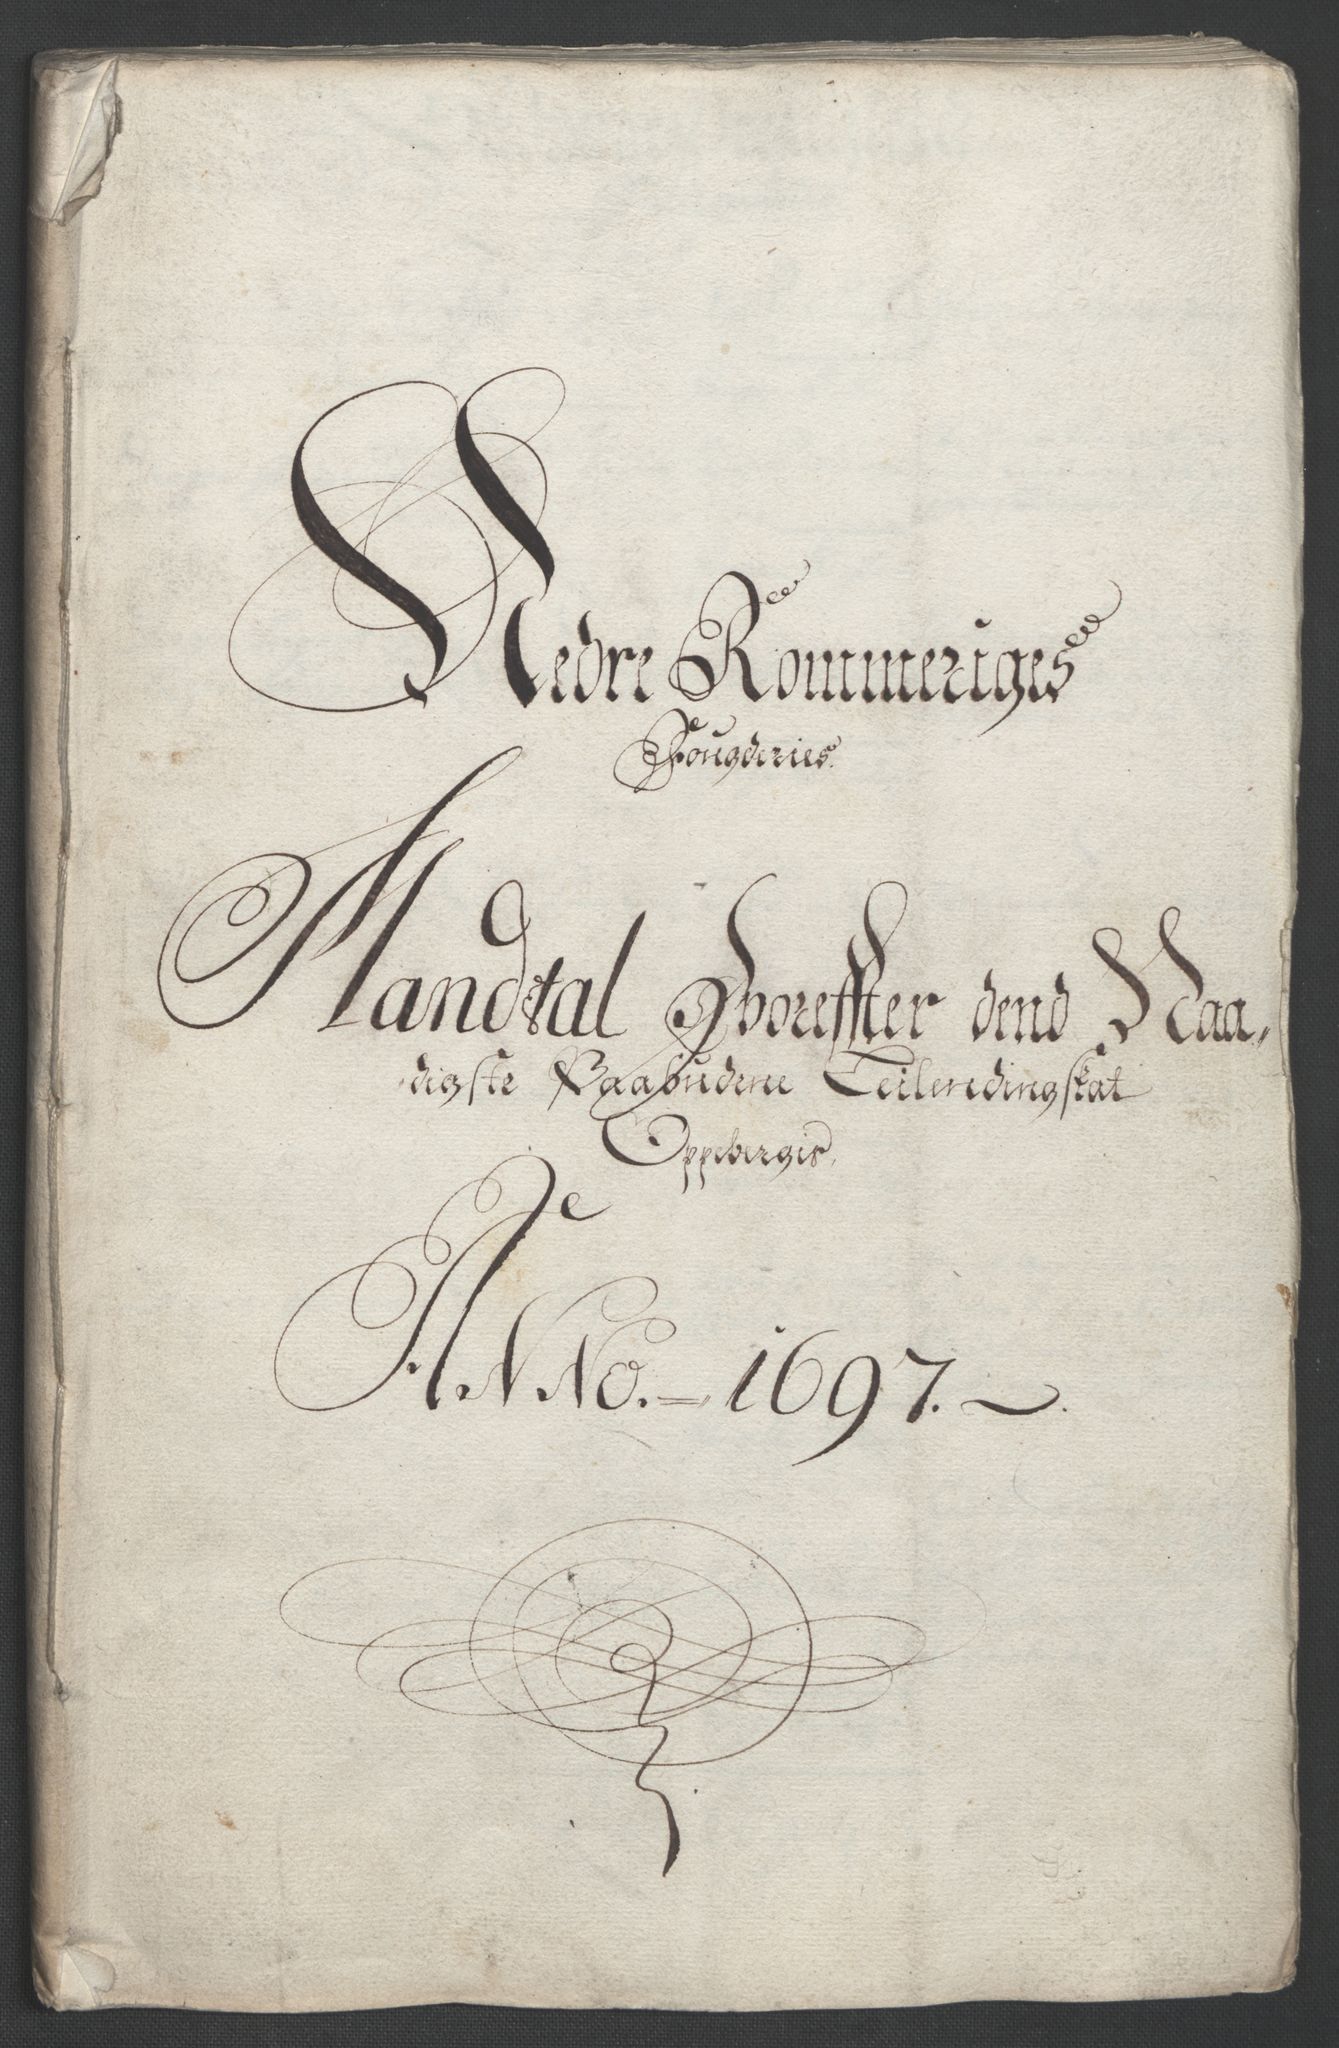 Nedre Rommeriges
Fougderies.
Mandtal Hvoreffter dend Naa„
digste Paabudene Leilendingskat
Oppebergis.
ANNo. 1697.